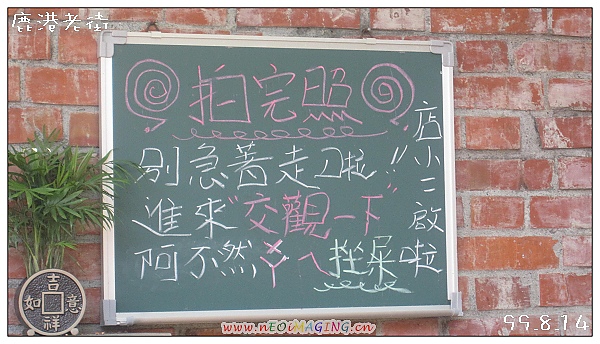 鹿港老街
拍完照
別急著走ㄌ啦!!
進來"交觀一下"
阿不然ㄚㄟ挫屎啦
店小二啟
吉祥如意
www.nEOiMAGING.cn
99.8.14